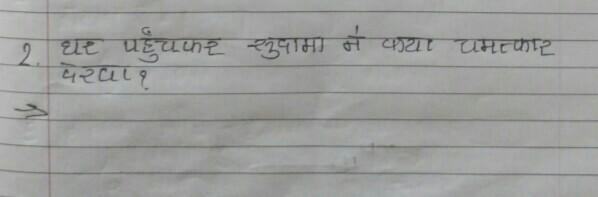 2. घर पहुँचकर सुदामा ने क्या चमत्कार
देखा?
→